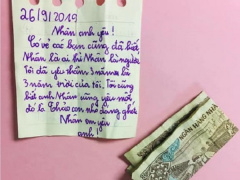 26/9/2019
Nhân anh yêu!
Có vẻ các bạn cũng đã biết
Nhân là ai thì Nhân là người
Tôi đã yêu thầm 3 năm là
3 năm trời của tôi, Tôi cũng
biết anh Nhân cũng yêu mới
đó là Thảo con nhỏ đáng ghét
Nhân em yêu
anh!
NGÂN HÀNG NHÀ